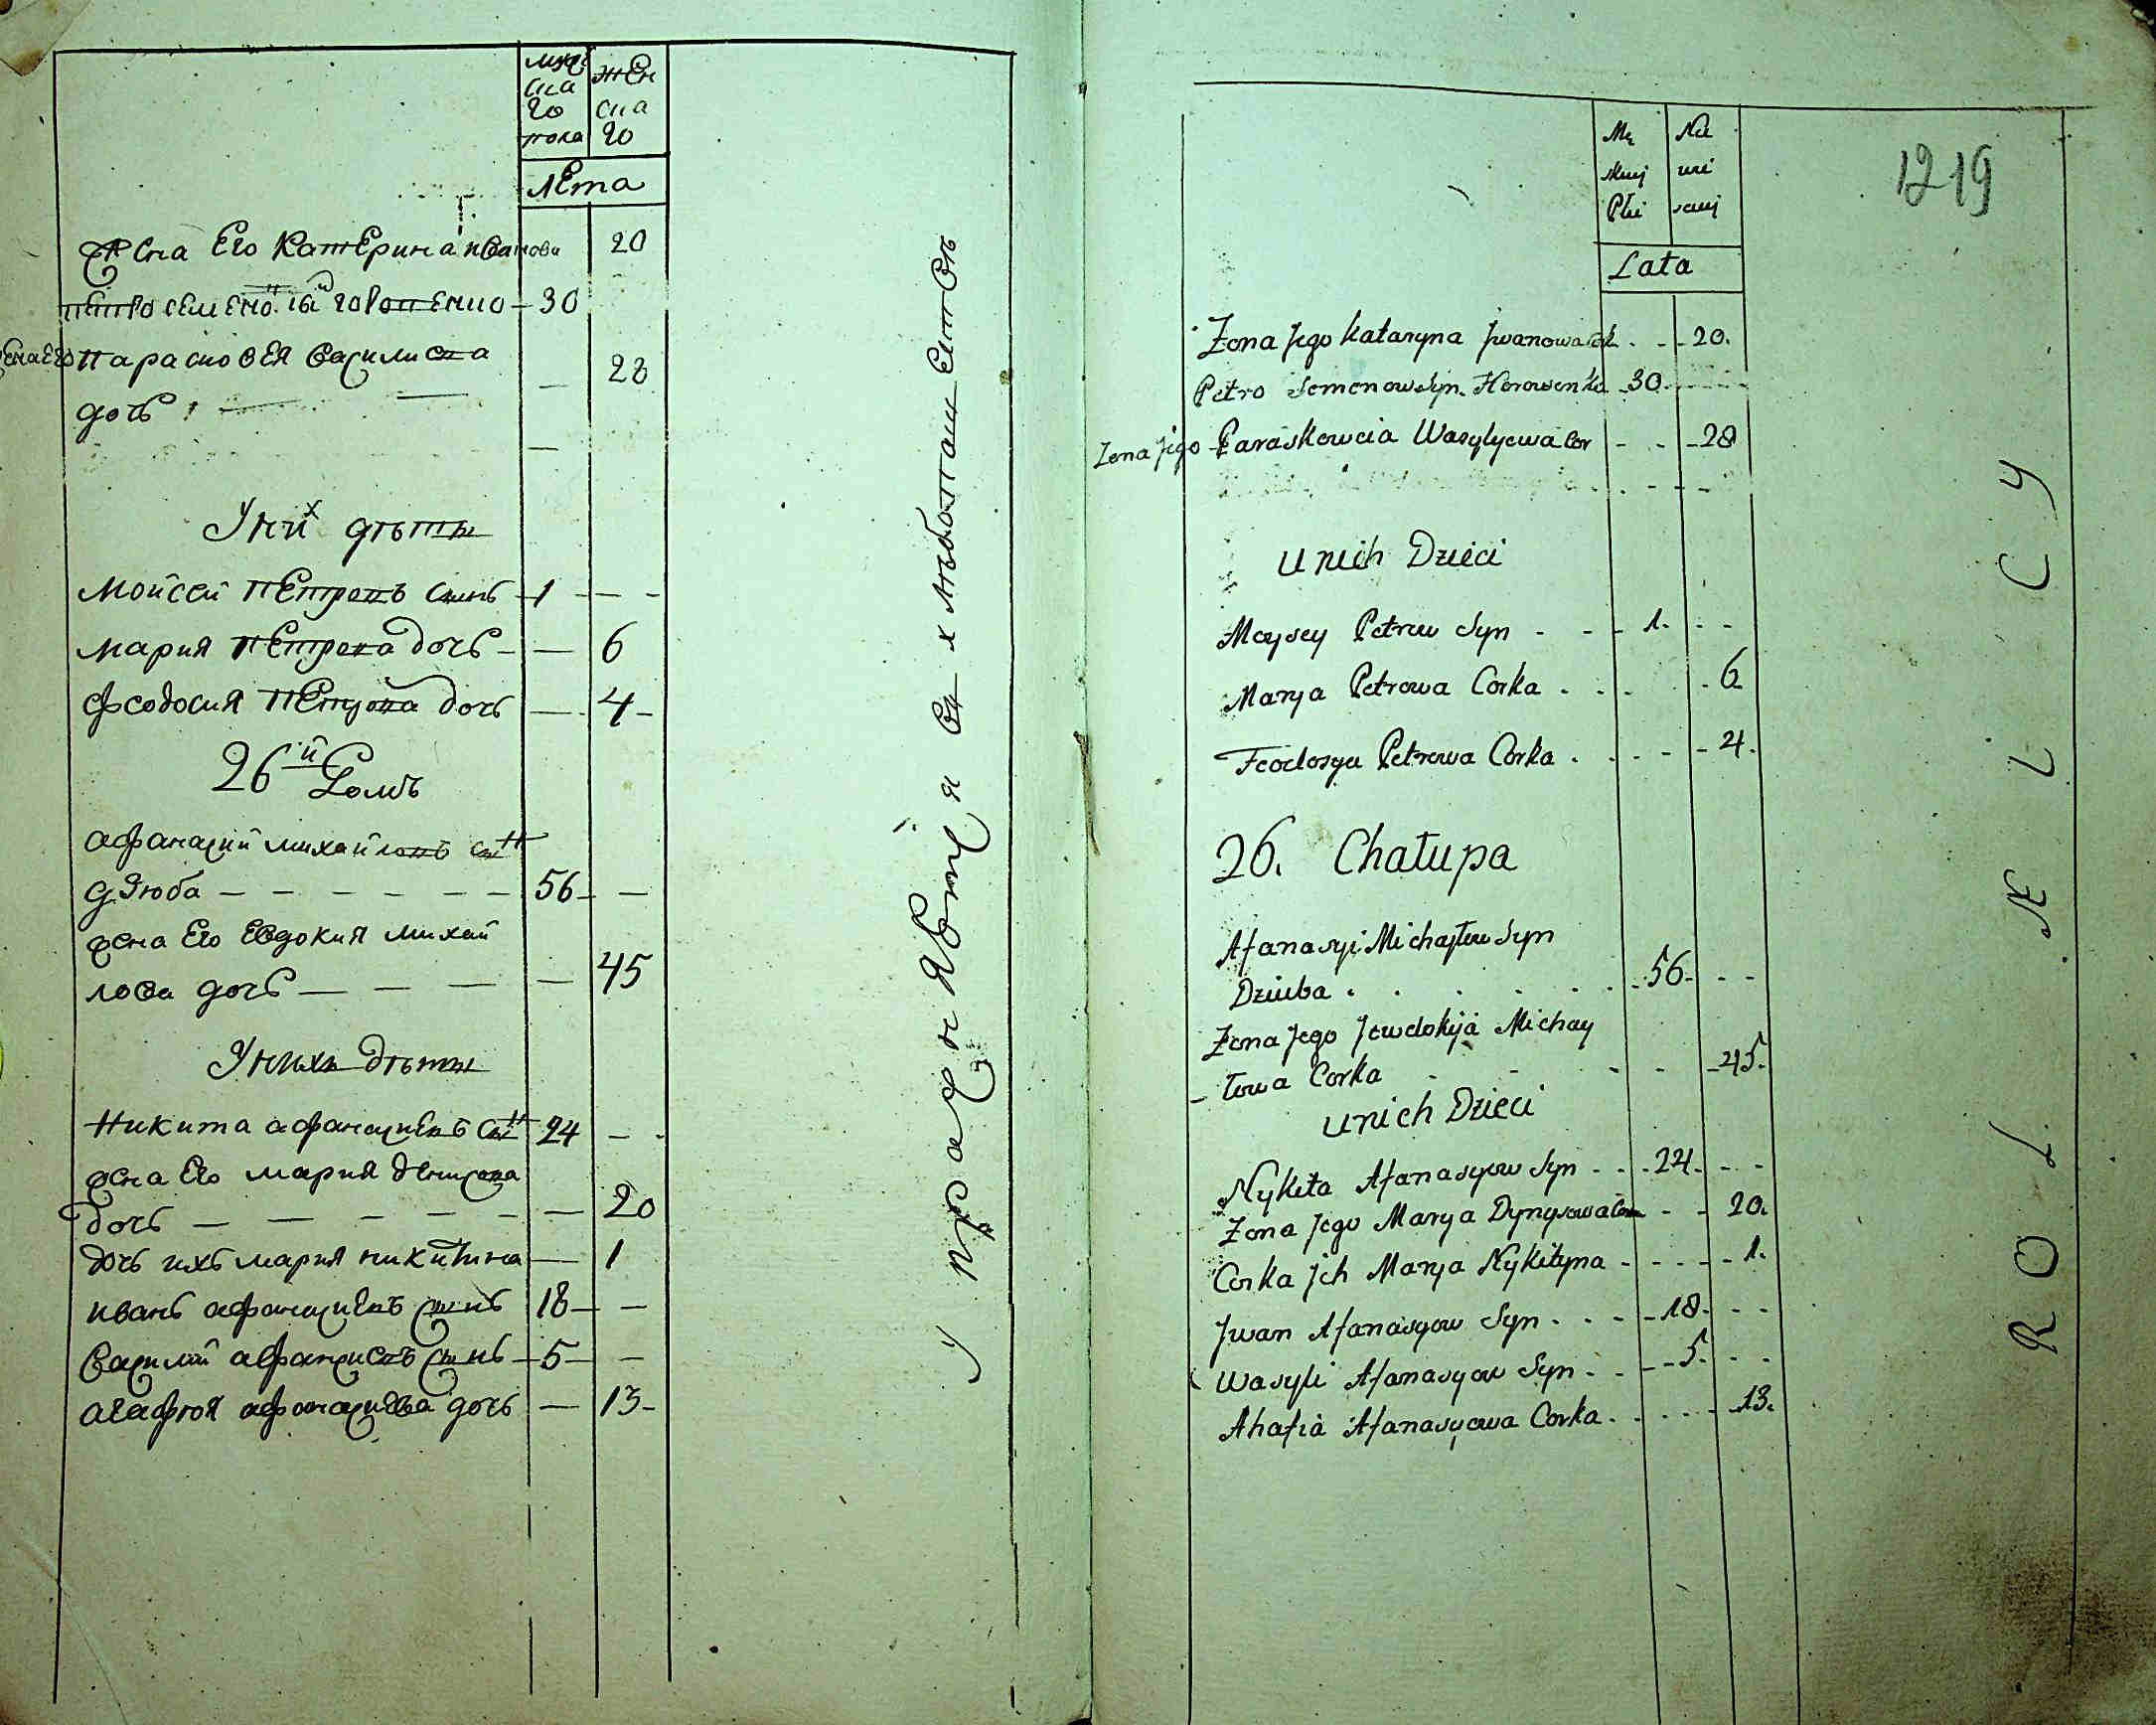 муж
ска
го
пола
жен
ска
го
лета
жена Его катерина иванова
20
петро семенов сын горовенко 30
жена Его парасковея василиева
28
дочь
У них дѣты
мойсей петровъ синъ 1
мария петрова дочь 6
феодосия петрова дочь 4
26й домъ
афанасий михайловъ сын
дзюба 56
жена Его Евдокия михай
лова дочь 45
У нихъ дѣты
Никита афанасиевъ сын 24
жена Его мария денисова
дочь 20
дочь ихъ мария никитина 1
иванъ афанасиевъ синъ 18
василий афанасиевъ синъ 5
агафия афанасиева дочь 13
1219
Mę
skiej
Płci
Nie
wie
sciej
Lata
Zona Jego Kataryna Jwanowa Cor 20.
Petro Semenow Syn. Horowenko 30
Zona Jego Paraskewia Wasylyewa Cor 28
U nich Dzieci
Moysey Petrow Syn 1.
Marya Petrowa Corka 6
Feodosya Petrowa Corka 4.
26. Chałupa
Afanasyi Michayłow Syn
Dziuba 56
Zona Jego Jewdokija Michay
łowa Corka 45.
U nich Dzieci
Nykita Afanasyow Syn 24.
Zona Jego Marya Dynysowa Cor 20.
Corka Jch Marya Nykityna 1.
Jwan Afanasyow Syn 18.
Wasyli Afanasyow Syn 5.
Ahafia Afanasyowa Corka 13.
ROL NICY